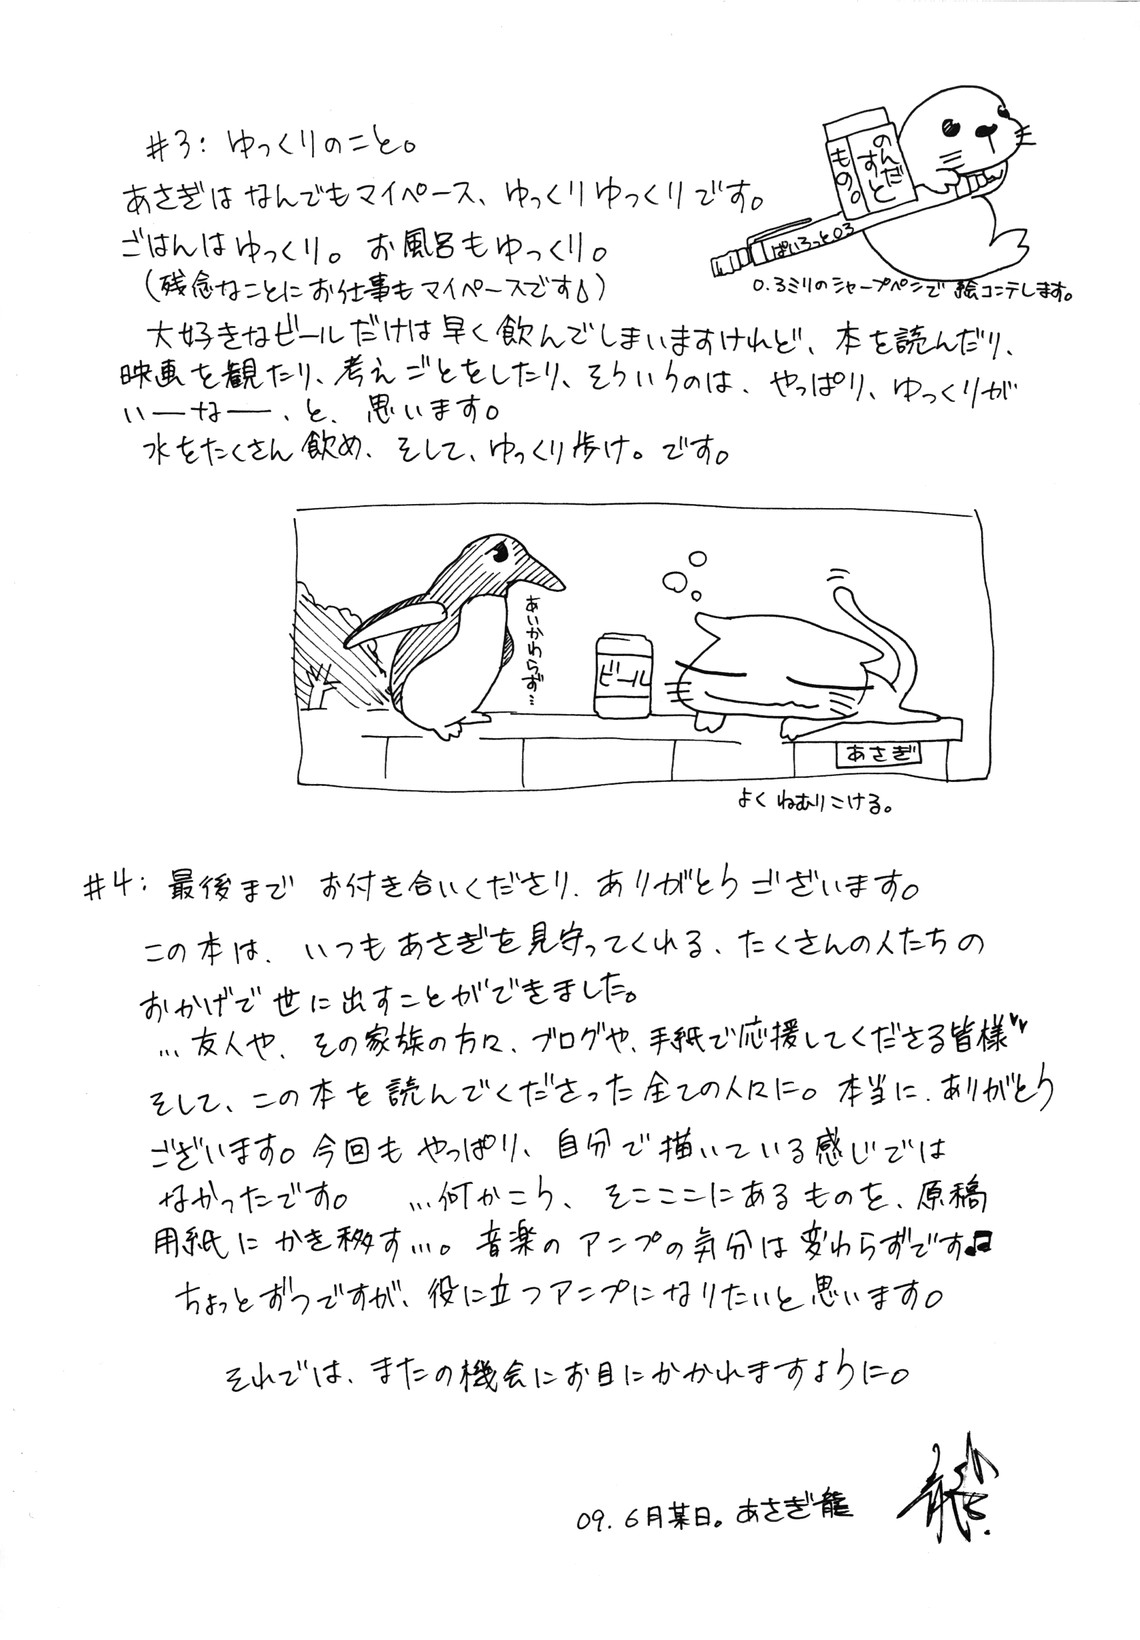 #3: ゆっくりのこと。
あさぎはなんでもマイペース、ゆっくりゆっくりです。
ごはんはゆっくり。お風呂もゆっくり。
(残念なことにお仕事もマイペースです)
大好きなビールだけは早く飲んでしまいますけれど、本を読んだり、
映画を観たり、考えごとをしたり、そういうのは、やっぱり、ゆっくりが
いーなー、と、思います。
水をたくさん飲め、そして、ゆっくり歩け。です。
のんだ
すと
もの。
ぱいろっと03
0.3ミリのシャープペンで絵コンテします。
あいかわらず…
ビール
あさぎ
よくねむりこける。
#4: 最後までお付き合いくださり、ありがとうございます。
この本は、いつもあさぎを見守ってくれる、たくさんの人たちの
おかげで世に出すことができました。
…友人や、その家族の方々、ブログや、手紙で応援してくださる皆様
そして、この本を読んでくださった全ての人々に。本当に、ありがとう
ございます。今回もやっぱり、自分で描いている感じでは
なかったです。 …何かこう、そこここにあるものを、原稿
用紙にかき移す…。音楽のアンプの気分は変わらずです♫
ちょっとずつですが、役に立つアンプになりたいと思います。
それでは、またの機会にお目にかかれますように。
09.6月某日。あさぎ龍